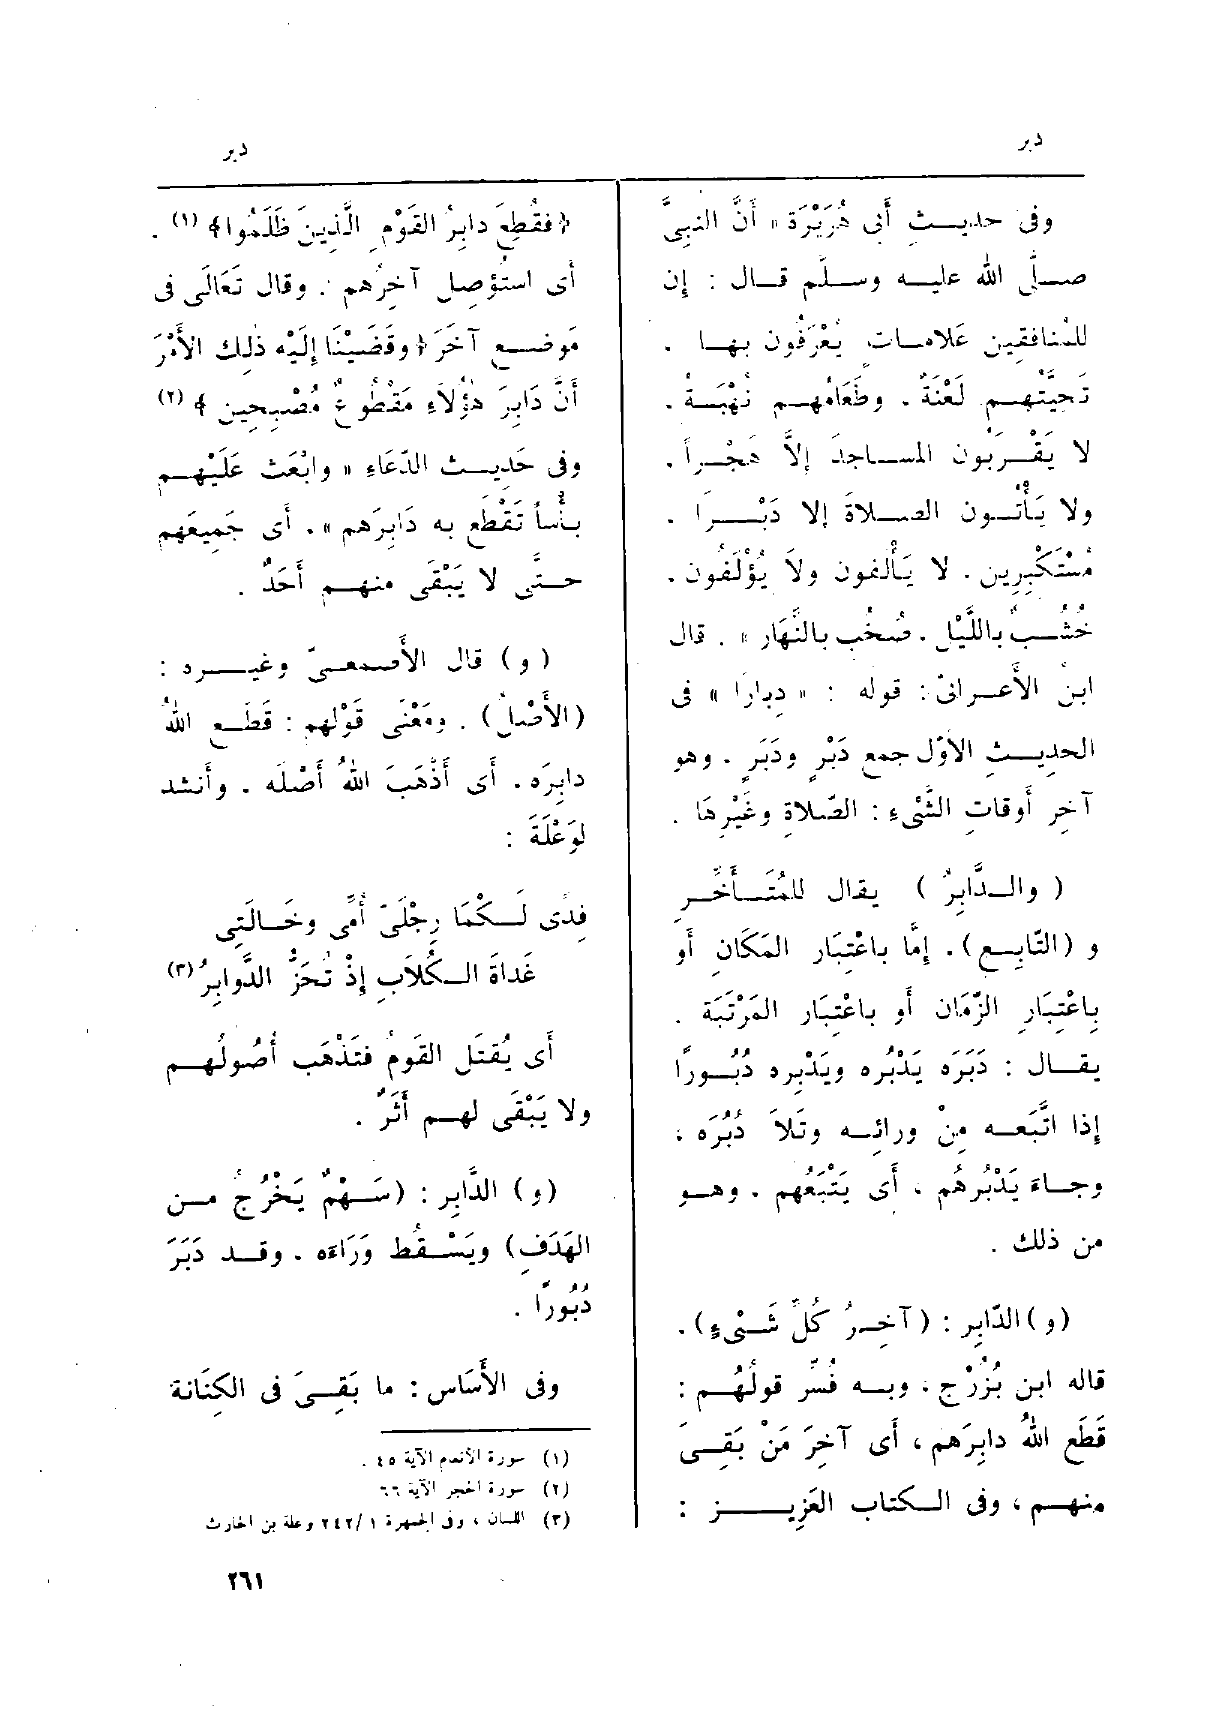 دبر
دبر
وفى حديثِ أَبى هُرَيْرَة « أَنَّ النبىَّ
صلَّى الله عليه وسلَّم قال : إِن
للمُنافقِين عَلامات يُعْرَفُون بها .
تَحيَّتُهم لَعْنَةٌ . وطَعَامُهم نُهْبَةٌ .
لا يَقْرَبُون المساجدَ إِلاَّ هَجْراً .
ولا يَأْتون الصلاةَ إلا دَبْرًا .
مُسْتَكْبِرِين . لا يَأْلَفون ولاَ يُؤْلَفُون .
خُشُبٌ باللَّيْل . صُخُب بالنَّهَار » . قال
ابنُ الأَعرابىّ : قوله : « دِبارًا » فى
الحديثِ الأَوّل جمع دَبْرٍ ودَبَرٍ . وهو
آخِر أَوقاتِ الشَّىْءِ : الصّلاةِ وغَيْرِهَا .
( والدَّابِرُ ) يقال للمُتَأَخِّرِ
و (التّابِع) . إِمَّا باعْتِبَار المَكَانِ أَو
بِاعْتِبَارِ الزّمَان أَو باعْتِبَار المَرْتَبَة .
يقال : دَبَرَه يَدْبُره ويَدْبِره دُبُورًا
إِذا اتَّبَعه مِنْ ورائِه وتَلاَ دُبُرَه ،
وجاءَ يَدْبُرهُم ، أَى يَتْبَعُهم . وهو
من ذٰلك .
(و) الدّابِر : (آخِرُ كُلِّ شَىْءٍ) .
قاله ابن بُزُرْج ، وبه فُسِّر قولُهُم :
قَطَع اللهُ دابِرَهم ، أَى آخِرَ مَنْ بَقِىَ
منهم ، وفى الكتاب العَزِيز :
﴿ فقُطِعَ دابِرُ القَوْمِ الَّذِينَ ظَلَمُوا﴾ (١) .
أَى استُؤصِل آخِرُهم . وقال تَعَالَى فى
مَوضع آخَرَ ﴿ وقَضَيْنَا إِلَيْه ذٰلِك الأَمْرَ
أَنَّ دَابِرَ هٰؤُلاَءِ مَقْطُوعٌ مُصْبِحِين ﴾ (٢)
وفى حَدِيث الدّعَاءِ « وابْعَث عَلَيْهم
بأْساً تَقْطَع به دَابِرَهم » . أَى جَمِيعَهم
حتَّى لا يَبْقَى منهم أَحَدٌ .
( و ) قال الأَصمعىّ وغيره :
(الأَصْلُ) . ومَعْنَى قَوْلهم : قَطَع اللهُ
دابِرَه . أَى أَذْهَبَ اللهُ أَصْلَه . وأَنشد
لوَعْلَةَ :
فِدًى لَكُمَا رِجْلَىّ أُمِّى وخَالَتِى
غَداةَ الكُلاَبِ إِذْ تُحَزُّ الدَّوابِرُ (٣)
أَى يُقتَل القَومُ فتَذْهَب أُصُولُهم
ولا يَبْقَى لهم أَثَرٌ .
(و) الدَّابِر : (سَهْمٌ يَخْرُجُ من
الهَدَفِ) ويَسْقُط وَرَاءَه . وقد دَبَرَ
دُبُورًا .
وفى الأَسَاس : ما بَقِىَ فى الكِنَانة
(١) سورة الأنعام الآية ٤٥ .
(٢) سورة الحجر الآية ٦٦
(٣) اللسان ، وفى الجمهرة ١ /٢٤٢ وعلة بن الحارث
٢٦١